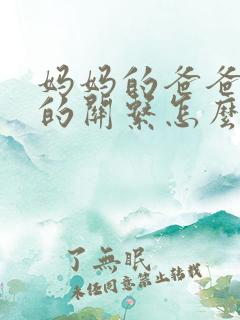 妈妈的爸爸
的關繫怎麼
了無眠
未经同意禁止转载